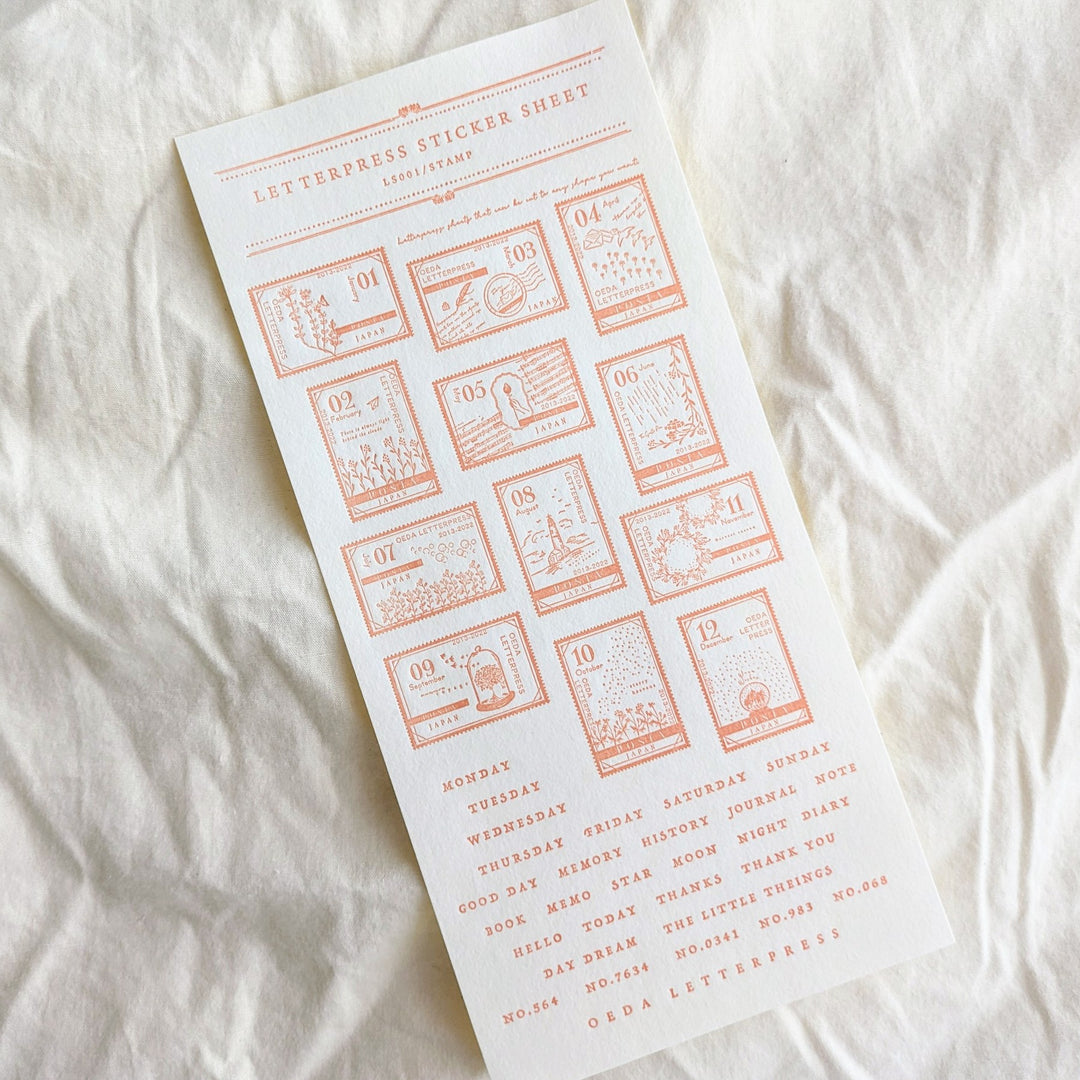 LETTERPRESS STICKER SHEET
LS001/STAMP
Letterpress sheets that can be cut to any shape you want
2013-2022
01
OEDA LETTERPRESS
POSTA
JAPAN
OEDA LETTERPRESS
2013-2022
March 03
POSTA
JAPAN
04 April
2013-2022
OEDA LETTERPRESS
POSTA
JAPAN
02
February
There is always light
behind the clouds
OEDA LETTERPRESS
2013-2022
POSTA
JAPAN
May 05
2013-2022
POSTA
JAPAN
06 June
OEDA LETTERPRESS
2013-2022
POSTA
JAPAN
July 07
OEDA LETTERPRESS
2013-2022
POSTA
JAPAN
08
August
OEDA LETTERPRESS
2013-2022
POSTA
JAPAN
2013-2022
11
November
OEDA LETTERPRESS
POSTA
JAPAN
2013-2022
09
September
OEDA LETTERPRESS
POSTA
JAPAN
10
October
OEDA LETTERPRESS
POSTA
JAPAN
12
December
OEDA
LETTER
PRESS
POSTA
JAPAN
MONDAY
TUESDAY
WEDNESDAY
THURSDAY FRIDAY SATURDAY SUNDAY
GOOD DAY MEMORY HISTORY JOURNAL NOTE
BOOK MEMO STAR MOON NIGHT DIARY
HELLO TODAY THANKS THANK YOU
DAY DREAM THE LITTLE THEINGS
NO.564 NO.7634 NO.0341 NO.983 NO.068
OEDA LETTERPRESS